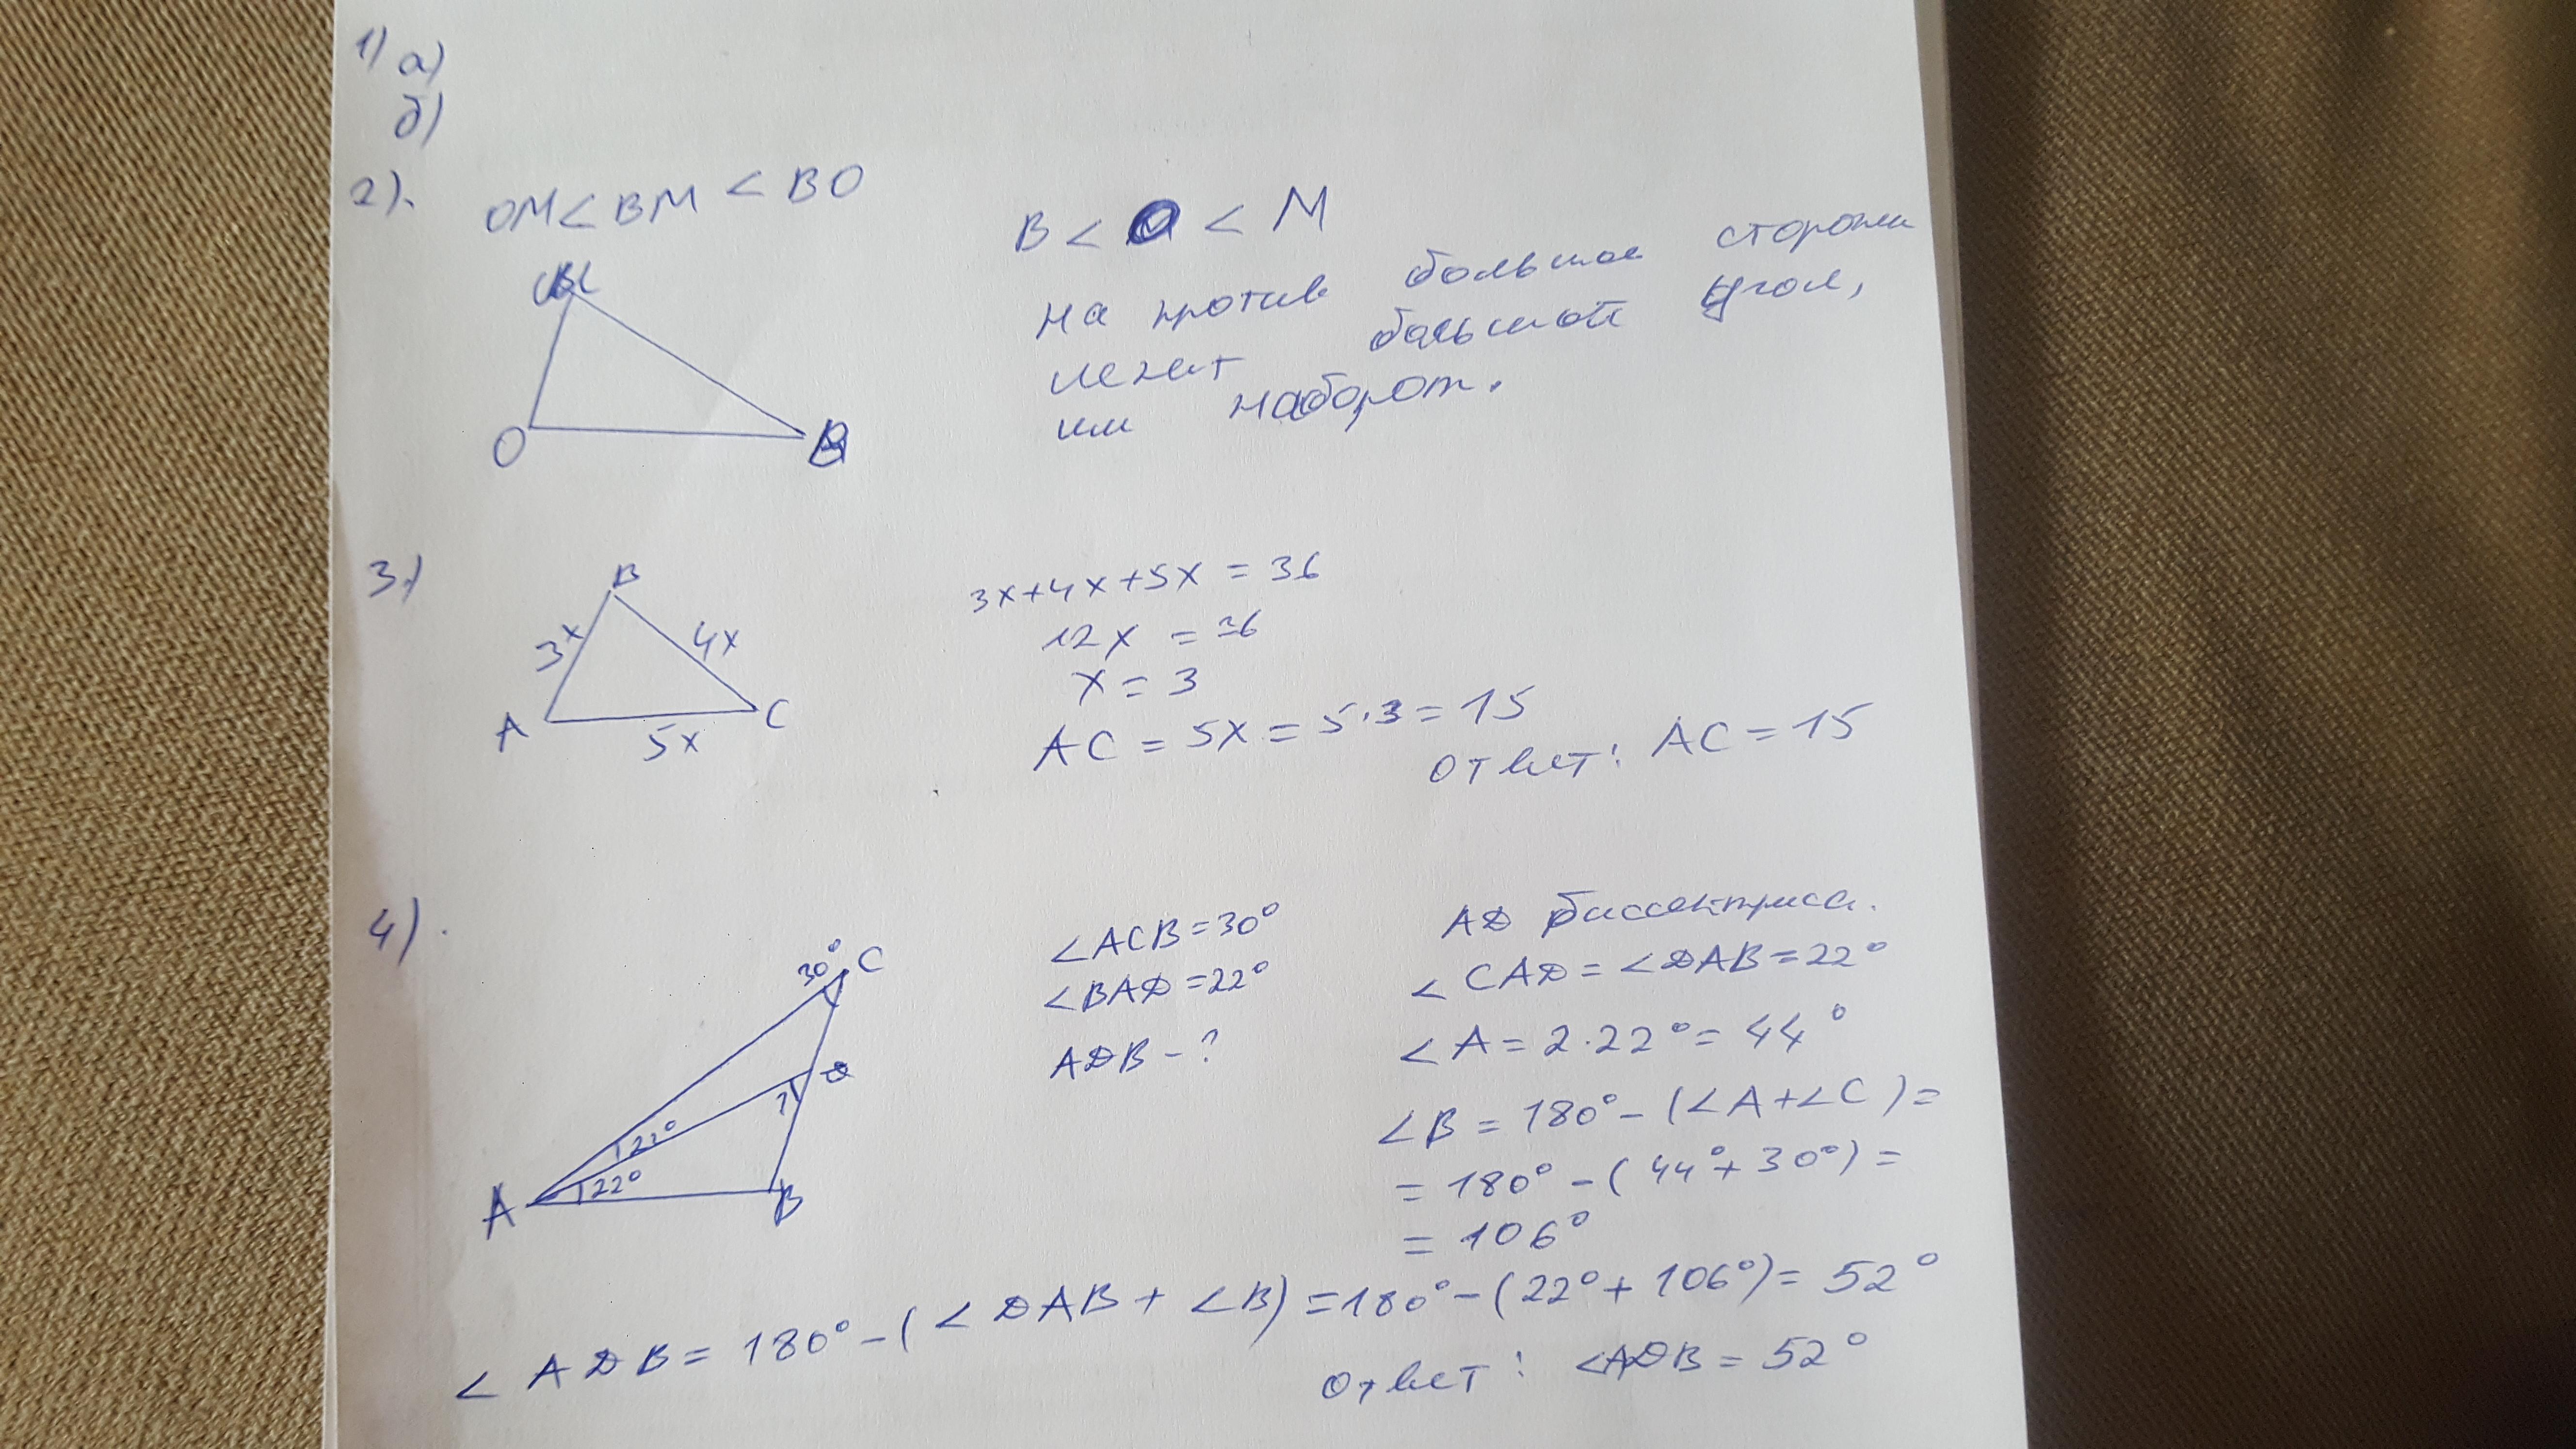 1) а)
б)
2). OM < BM < BO
B < O < M
на против большое стороны
лежат большой угол,
им наоборот.
O
B
3.)
B
3x
4x
A
C
5x
3x+4x+5x = 36
12x = 36
x = 3
AC = 5x = 5·3 = 15
ответ: AC = 15
4).
30° C
D
?
22°
22°
A
B
∠ACB=30°
∠BAD=22°
ADB - ?
AD биссектриса.
∠CAD = ∠DAB=22°
∠A = 2·22° = 44°
∠B = 180° - (∠A+∠C) =
= 180° - (44°+30°) =
= 106°
∠ADB = 180° - (∠DAB + ∠B) = 180° - (22° + 106°) = 52°
ответ: ∠ADB = 52°